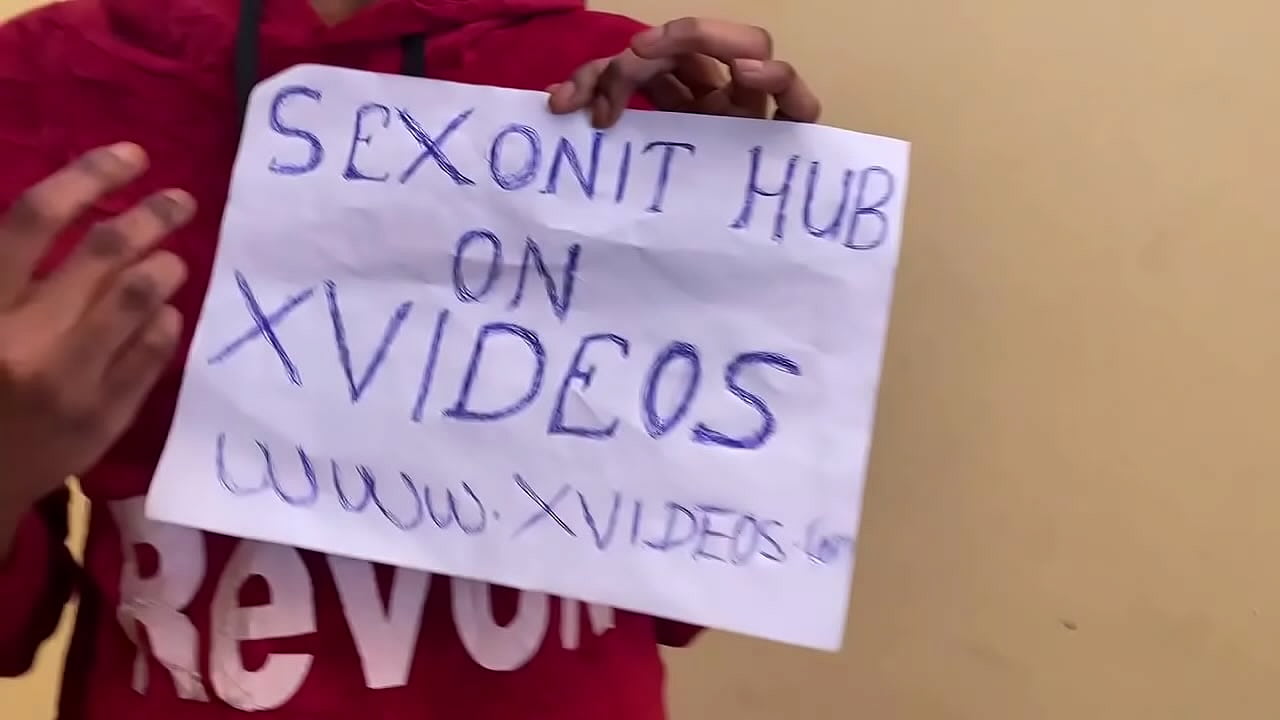 SEXONIT HUB
ON
XVIDEOS
WWW.XVIDEOS.Com